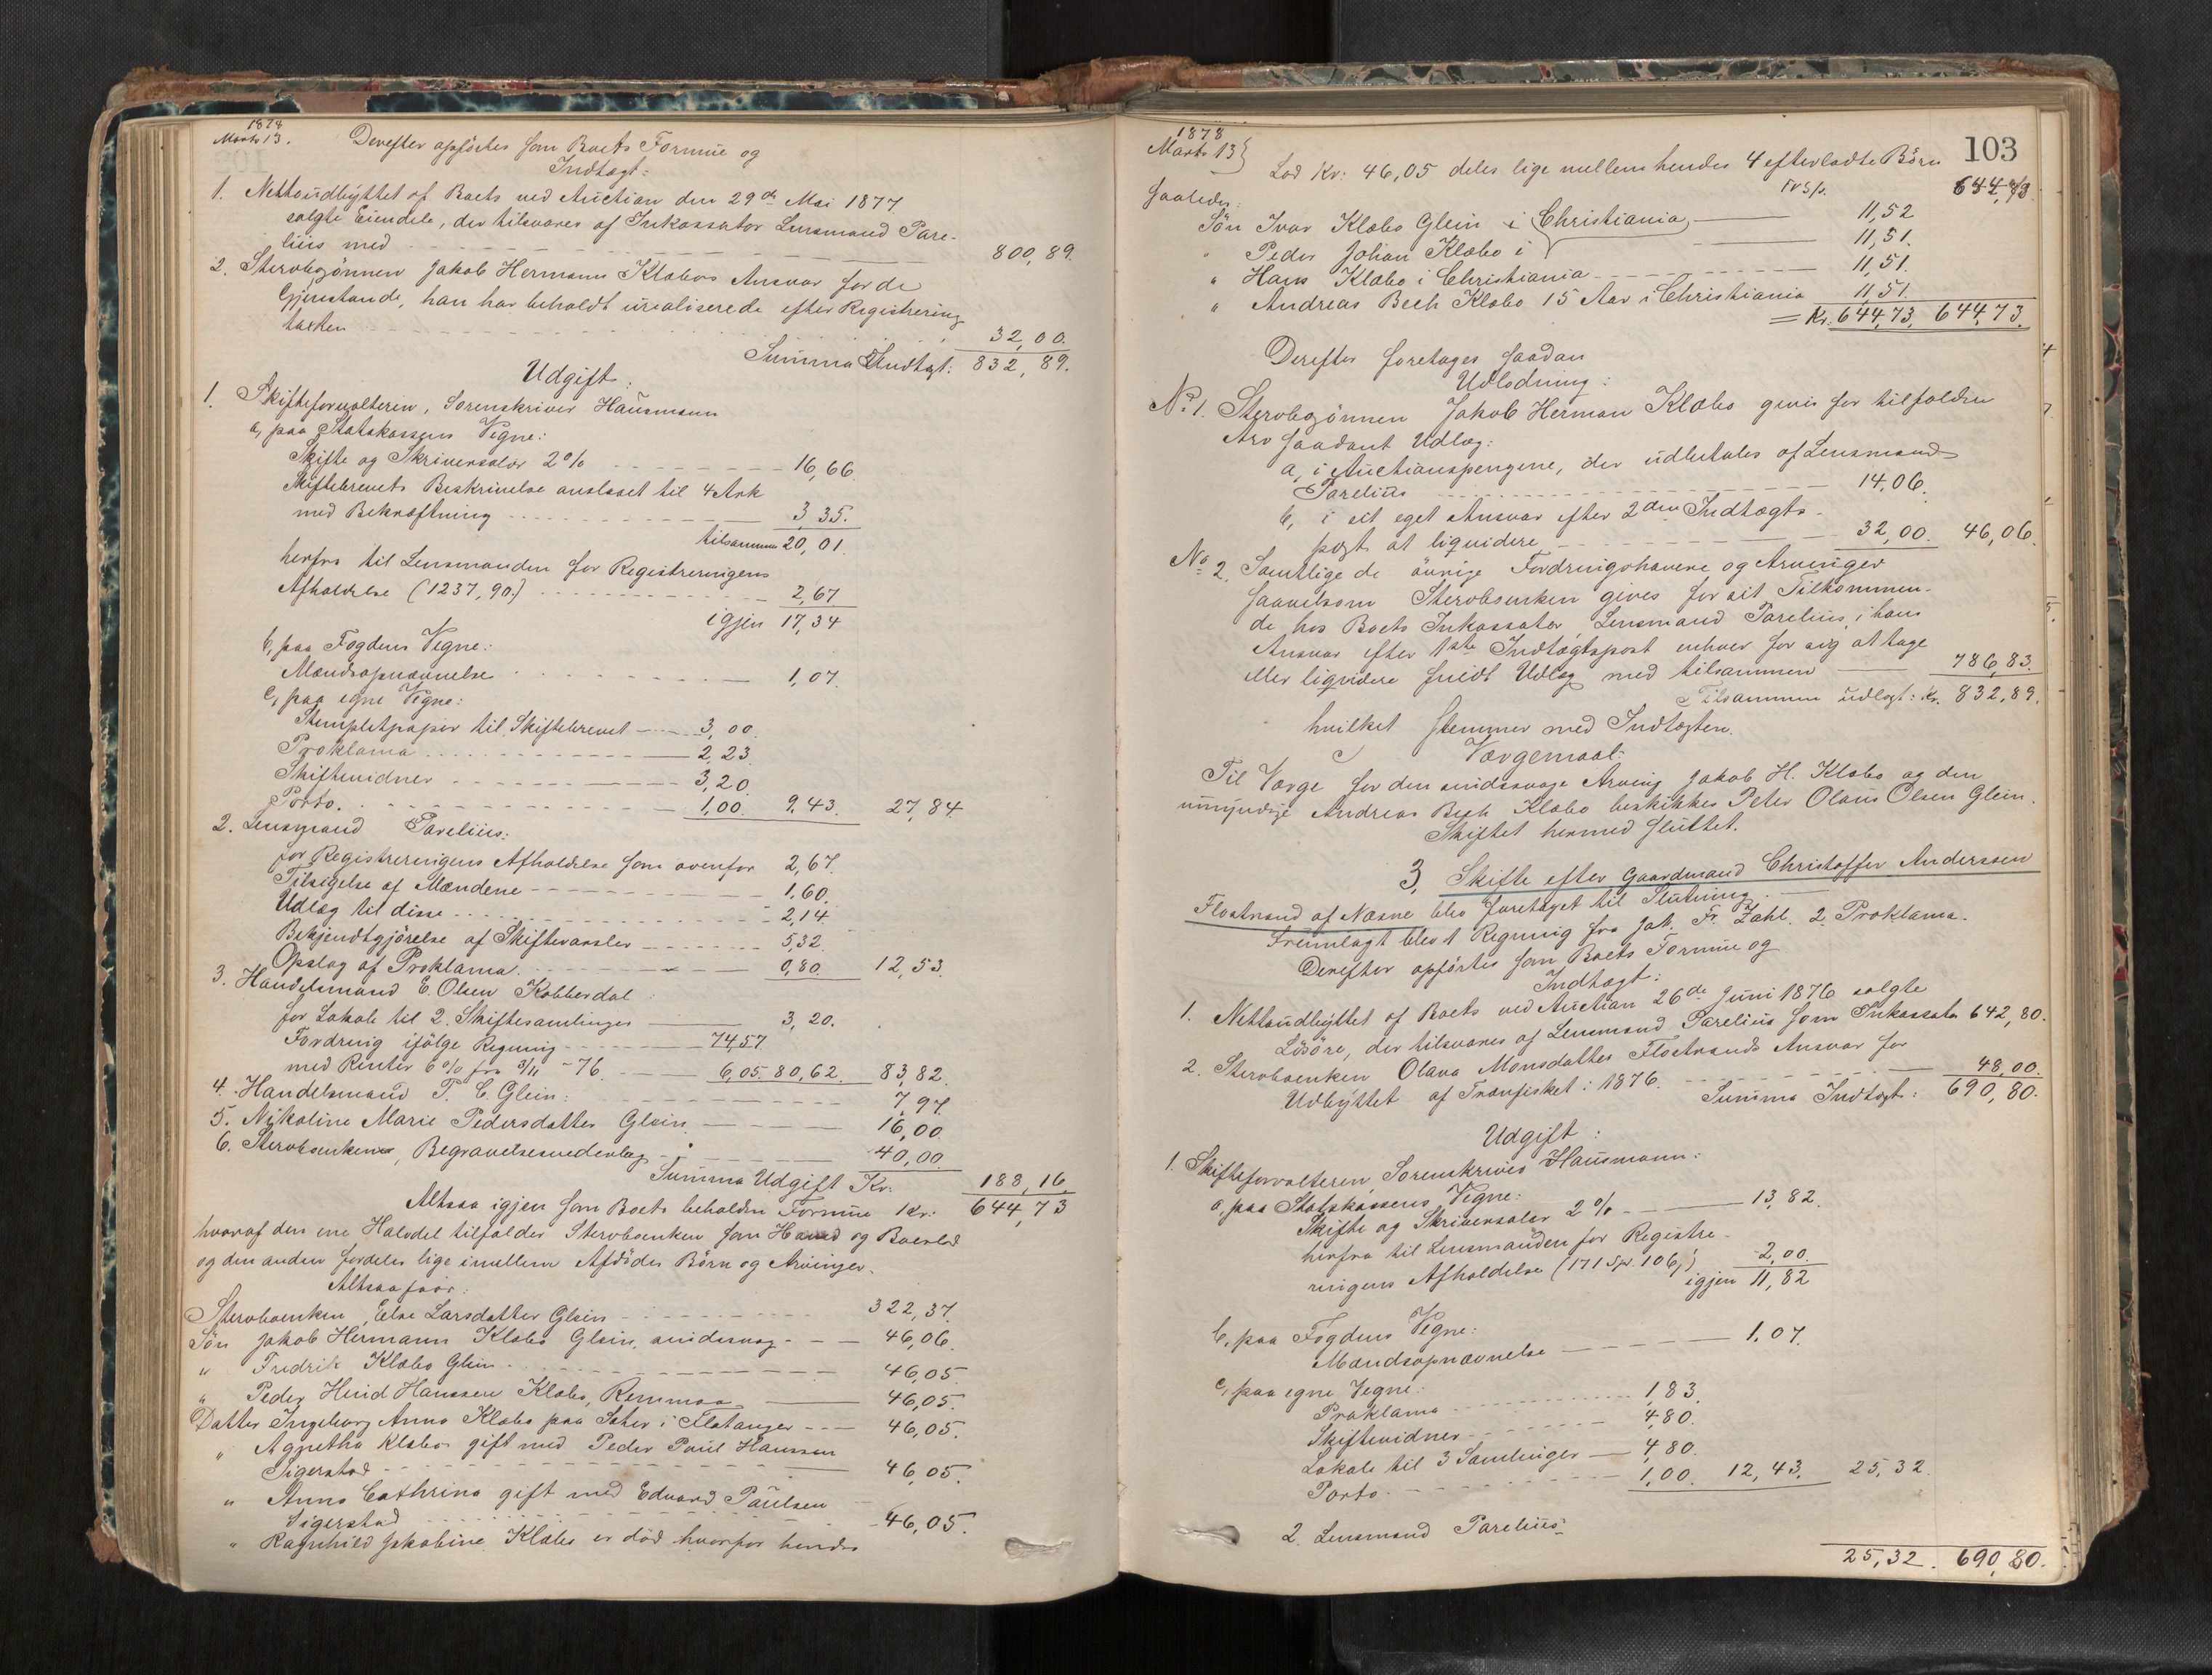 1878
Marts 13.
Derefter opförtes som Boets Formue og
Indtægt:
1. Nettoudbyttet af Boets ved Auction den 29de Mai 1877
solgte Eiendele, der tilsvares af Inkassator Lensmand Pare-
lius med 800,89.
2. Stervbosönnen Jakob Hermann Klæbos Ansvar for de
Gjenstande, han har beholdt urealiserede efter Registrering
taxten 32,00.
Summa Indtægt: 832,89.
Udgift:
1. Skifteforvalteren, Sorenskriver Hausmann
a, paa Statskassens Vegne:
Skifte og Skriversalær 2% 16,66
Skiftebrevets Beskrivelse anslaaet til 4 Ark
med Bekræftning 3,35.
tilsammen 20,01.
herfra til Lensmanden for Registreringens
Afholdelse (1237,90.) 2,67
igjen 17,34
b, paa Fogdens Vegne:
Mandsopnævnelse 1,07.
c, paa egne Vegne:
Stempletpapir til Skiftebrevet 3,00.
Proklama 2,23
Skiftevidner 3,20.
Porto. 1,00. 9,43. 27,84.
2. Lensmand Parelius:
for Registreringens Afholdelse som ovenfor 2,67.
Tilsigelse af Mændene 1,60.
Udlæg til disse 2,14
Bekjendtgjörelse af Skiftevarsler 5,32.
Opslag af Proklama. 0,80. 12,53.
3. Handelsmand E. Olsen Kobberdal
for Lokale til 2. Skiftesamlinger 3,20.
Fordring ifölge Regning 74,57
med Renter 6% fra 3/11 -76. 6,05. 80,62. 83,82.
4. Handelsmand P. C. Glein: 7,97.
5. Nikoline Marie Pedersdatter Glein 16,00
6. Stervboenken, Begravelsesvederlag 40,00
Summa Udgift Kr: 188,16
Altsaa igjen som Boets beholdne Formue Kr: 644,73
hvoraf den ene Halvdel tilfalder Stervboenken som Hoved og Boeslod
og den anden fordeles lige imellem Afdödes Börn og Arvinger.
Altsaa faar:
Stervboenken, Else Larsdatter Glein 322,37.
Sön Jakob Hermann Klæbo Glein, sindssvag 46,06.
" Fredrik Klæbo Glein 46,05.
" Peder Hind Hanssen Klæbo, Remmaa 46,05.
Datter Ingeborg Anna Klæbo paa Sæter i Flatanger 46,05.
" Agnetha Klæbo gift med Peder Poul Hanssen
Sigerstad 46,05.
" Anna Cathrina gift med Edvard Paulsen
Sigerstad 46,05.
" Ragnhild Jakobine Klæbo er död hvorfor hendes
103
1878
Marts 13
Lod Kr: 46,05 deles lige mellem hendes 4 efterladte Börn
saaledes: 644,73.
Sön Ivar Klæbo Glein i Christiania 11,52
" Peder Johan Klæbo i 11,51.
" Hans Klæbo i Christiania 11,51.
" Andreas Bech Klæbo 15 Aar i Christiania 11,51.
= Kr. 644,73. 644,73.
Derefter foretages saadan
Udlodning:
No. 1. Stervbosönnen Jakob Herman Klæbo gives for tilfalden
Arv saadant Udlæg:
a, i Auctionspengene, der udbetales af Lensmand
Parelius 14,06.
b, i sit eget Ansvar efter 2den Indtægts-
post at liquidere 32,00. 46,06.
No. 2. Samtlige de övrige Fordringshavere og Arvinger
saavelsom Stervboenken gives for sit Tilkommen-
de hos Boets Inkassator, Lensmand Parelius, i hans
Ansvar efter 1ste Indtægtspost enhver for sig at tage
eller liquidere sneidt Udlæg med tilsammen 786,83.
Tilsammen udlagt: Kr. 832,89.
hvilket stemmer med Indtægten.
Værgemaal:
Til Værge for den sindssvage Arving Jakob H. Klæbo og den
umyndige Andreas Bech Klæbo beskikkes Peter Olaus Olsen Glein.
Skiftet hermed sluttet.
3, Skifte efter Gaardmand Christoffer Anderssen
Flostrand af Næsne blev foretaget til Slutning.
Fremlagt blev 1 Regning fra Joh. Fr. Zahl. 2 Proklama.
Derefter opförtes som Boets Formue og
Indtægt:
1. Nettoudbyttet af Boets ved Auction 26de Juni 1876 solgte
Lösöre, der tilsvares af Lensmand Parelius som Inkassator 642,80.
2. Stervboenken Olava Monsdatter Flostrands Ansvar for
Udbyttet af Trænfisket i 1876. 48,00.
Summa Indtægt: 690,80.
Udgift:
1. Skifteforvalteren, Sorenskriver Hausmann:
a, paa Statskassens Vegne:
Skifte og Skriversalær 2% 13,82.
herfra til Lensmanden for Registre-
ringens Afholdelse (171 Sp. 106) 2,00.
igjen 11,82
b, paa Fogdens Vegne:
Mandsopnævnelse 1,07.
c, paa egne Vegne:
Proklama 1,83.
Skiftevidner 4,80.
Lokale til 3 Samlinger 4,80.
Porto 1,00. 12,43. 25,32.
2. Lensmand Parelius:
25,32. 690,80.